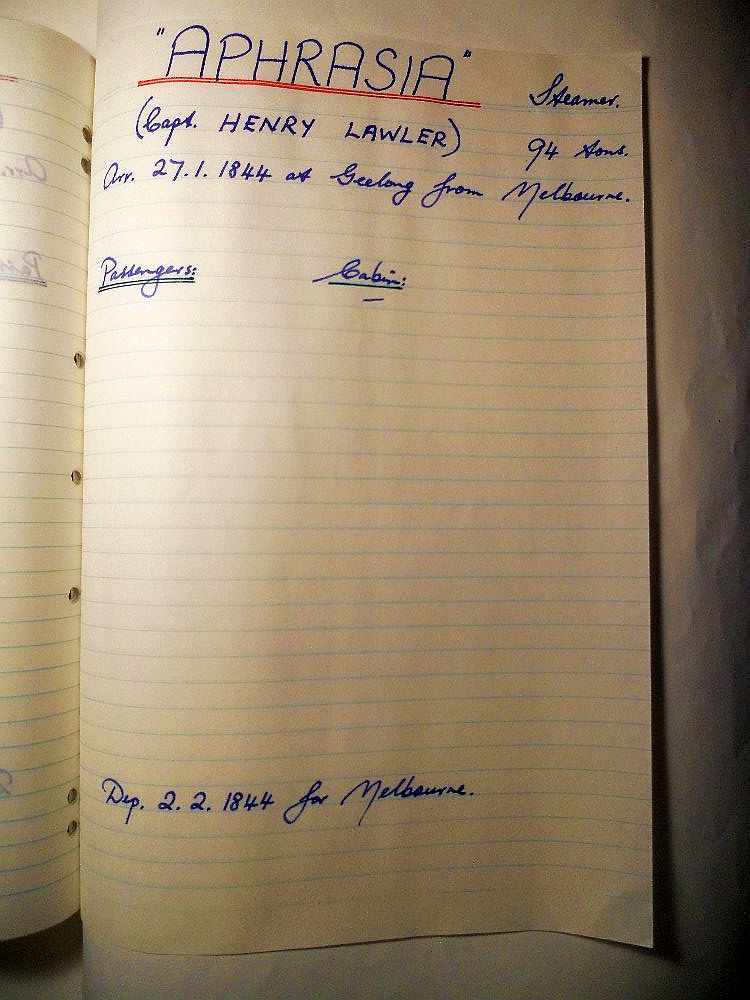 "APHRASIA" Steamer.
(Capt. HENRY LAWLER) 94 tons.
Arr. 27.1.1844 at Geelong from Melbourne.
Passengers: Cabin:
—
Dep. 2.2.1844 for Melbourne.